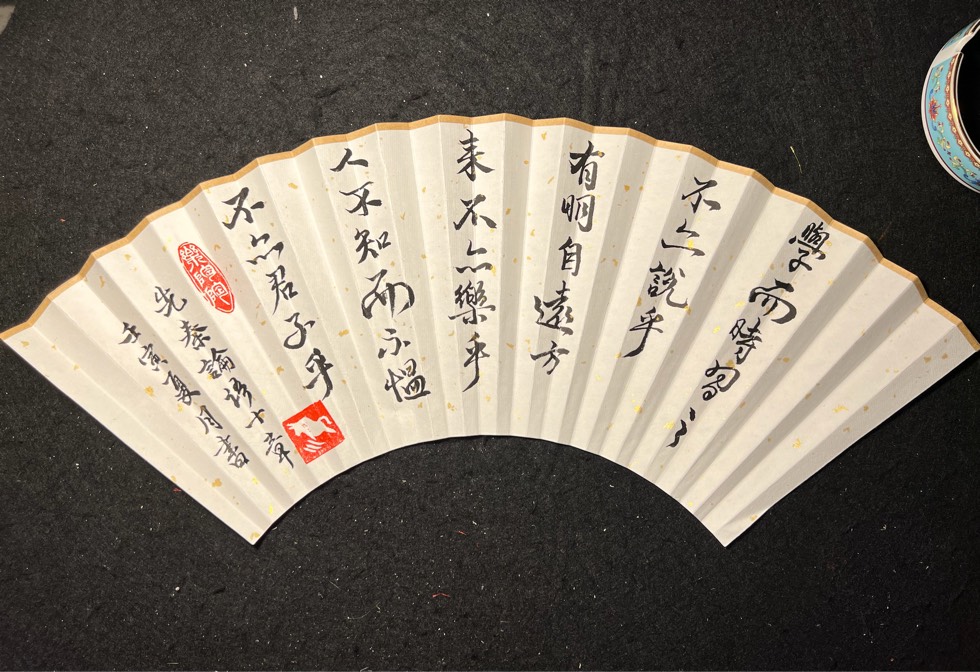 學而時習之
不亦說乎
有朋自遠方
来不亦樂乎
人不知而不愠
不亦君子乎
先秦論語十章
壬寅夏月書